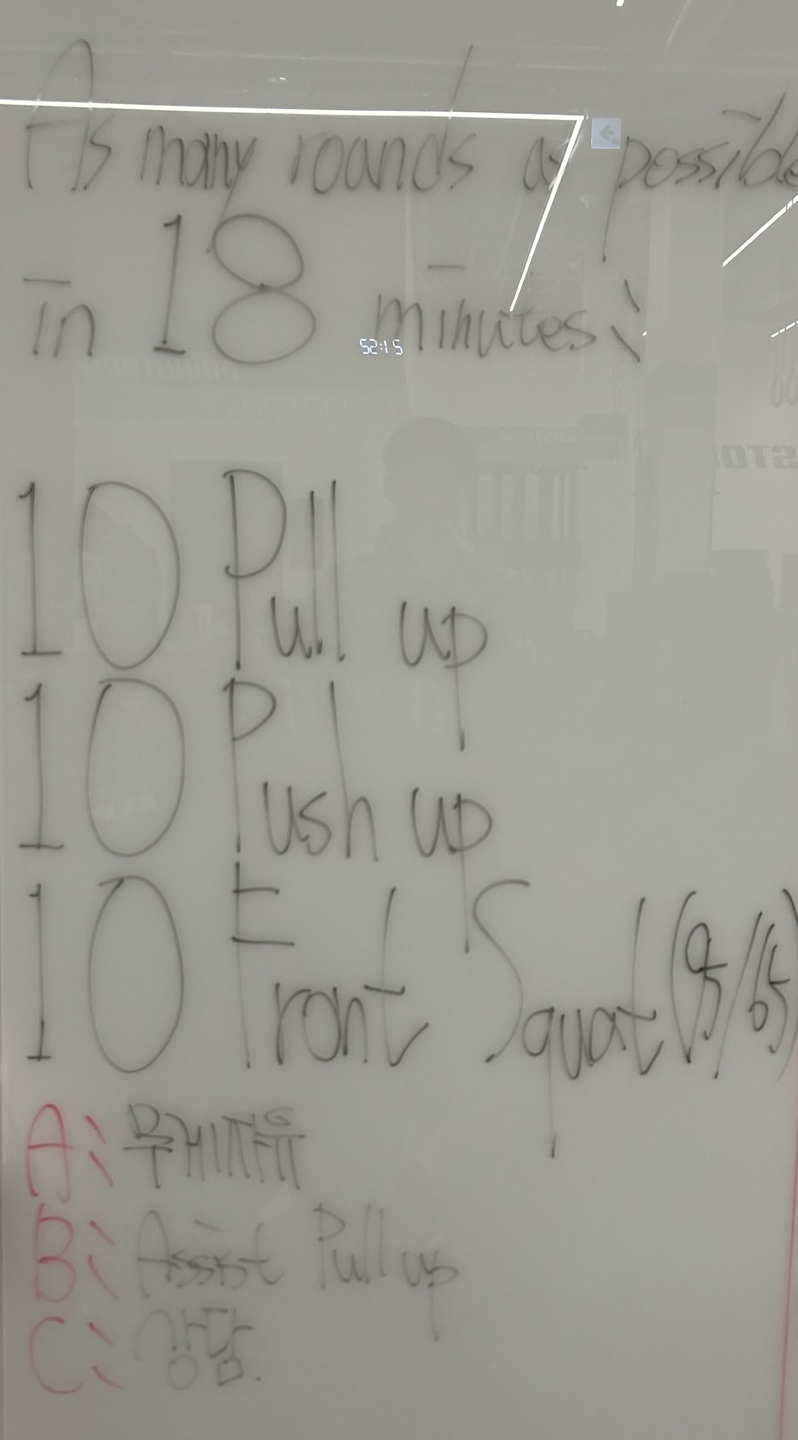 As many rounds as possible
in 18 minutes:
10 Pull up
10 Push up
10 Front Squat (95/65)
A: 무게자유
B: Assist Pull up
C: 상담.